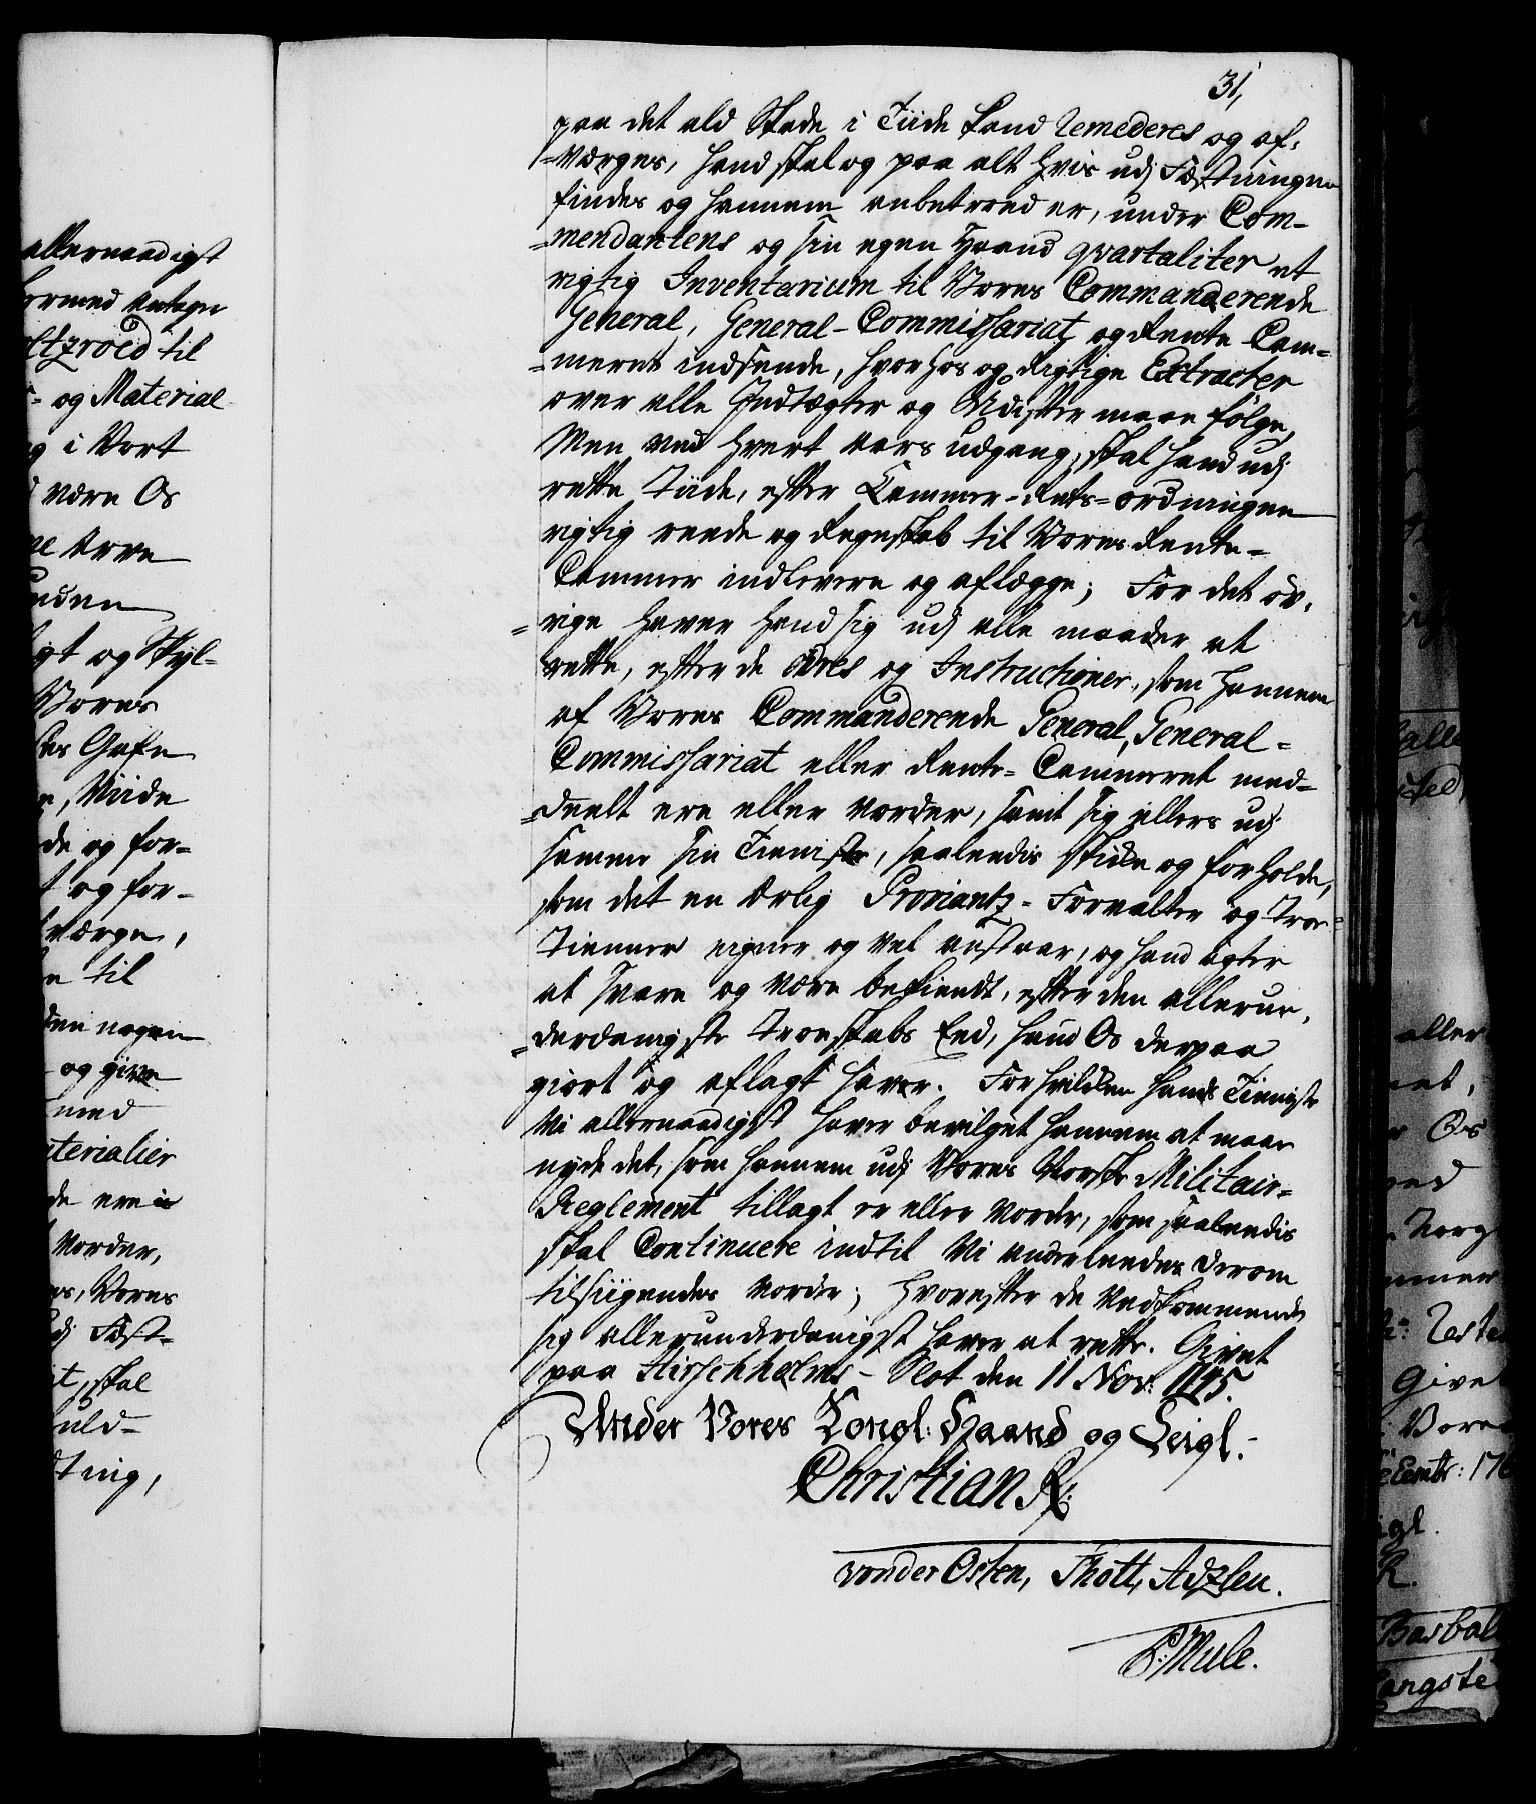 31,
paa det ald Skade i Tiide kand remederes og af-
-værges, hand skal og paa alt hvis udj Fæstningen
findes og hannem anbetroed er, under Com-
-mendantens og sin egen Haand qvartaliter et
rigtig Inventarium til Vores Commanderende
General, General-Commissariat, og Rente Cam-
-meret indsende, hvorhos og rigtige Extracter
over alle Indtægter og Udgifter maae følge,
Men ved hvert Aars udgang, skal hand udj
rette Tiide, efter Cammer-Rets-ordningen
rigtig reede og Regnskab til Vores Rente-
Cammer indlevere og aflægge; For det öv-
-rige haver hand sig udj alle maader at
rette, efter de Ordres og Instructioner, som hannem
af Vores Commanderende General, General-
Commissariat eller Rente-Cammeret med-
-deelt ere eller vorder, samt sig ellers udj
samme sin Tieniste, saaledis skikke og forholde,
som det en ærlig Proviantz-Forvalter og Troe
Tienner eigner og vel anstaar, og hand agter
at svare og være bekiendt, efter den allerun-
-derdanigste Troeskabs Eed, hand Os derpaa
giort og aflagt haver. For hvilken hands Tieniste
Vi allernaadigst haver bevilget hannem at maae
nyde det, som hannem udj Vores Norske Militair-
Reglement tillagt er eller vorder, som saaledis
skal Continuere indtil Vi anderleedes derom
tilsigendes vorder; hvorefter de Vedkommende
sig allerunderdanigst haver at rette. Givet
paa Hirschholms-Slot den 11 Nov: 1745.
Under Vores Kongl: Haand og Seigl.
Christian R:
von der Osten, Thott, Adzlew.
P: Mule.
allernaadigst
og Material
i Vort
være Os
og Skyl-
Vores
og for-
til
og give
med
aterialier
Vorder,
Vores
Fæst-
skal
aller
Os
Givet
Vores
R.